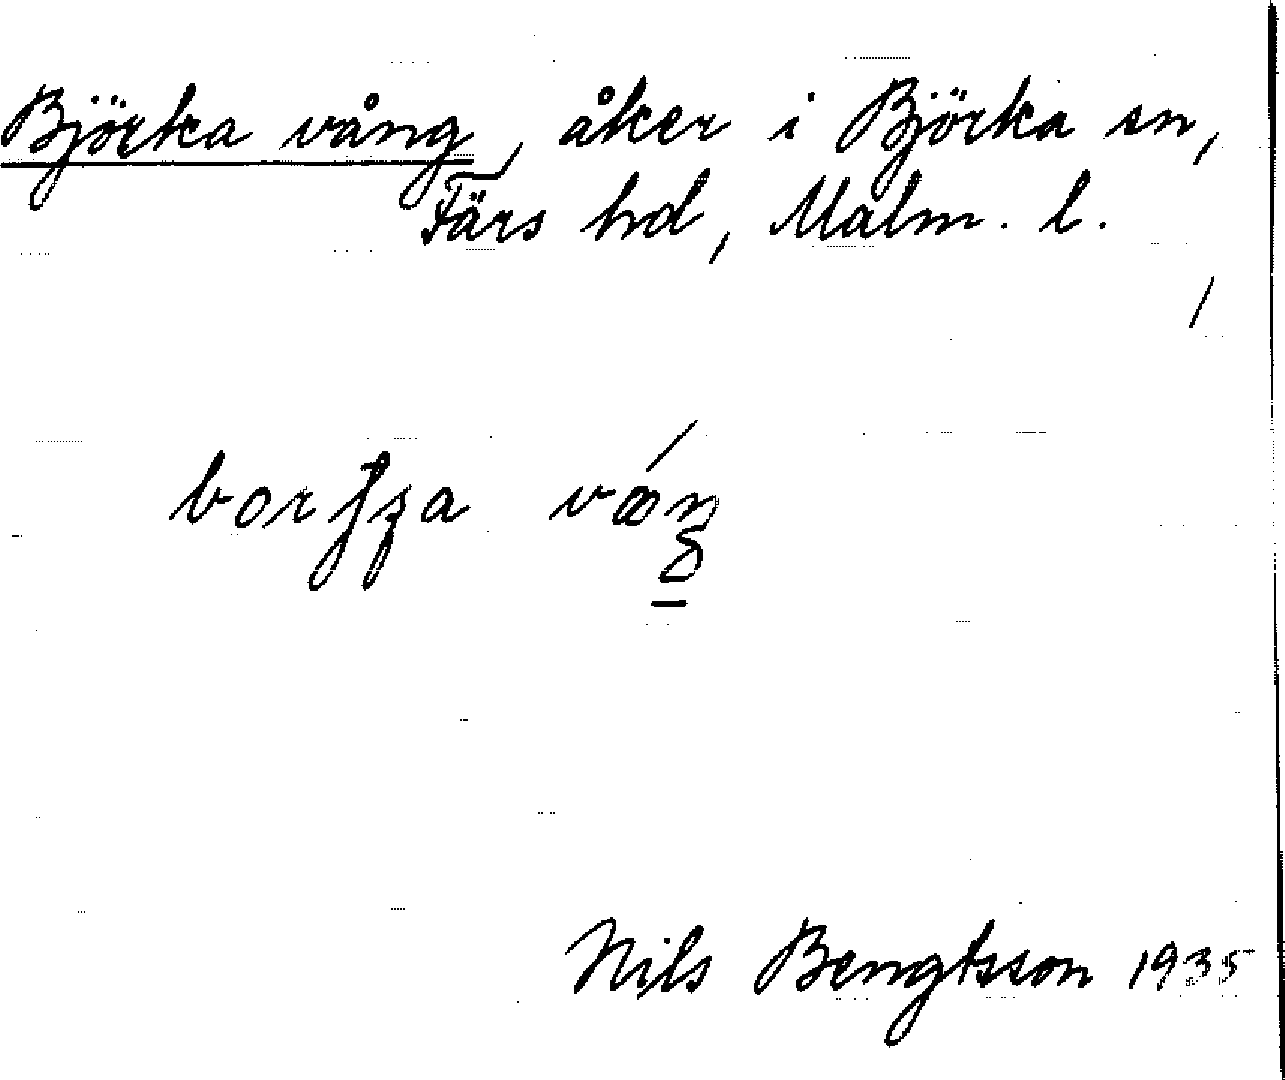 Björka vång, åker i Björka sn,
Färs hd, Malm. l.
Nils Bengtsson 1935